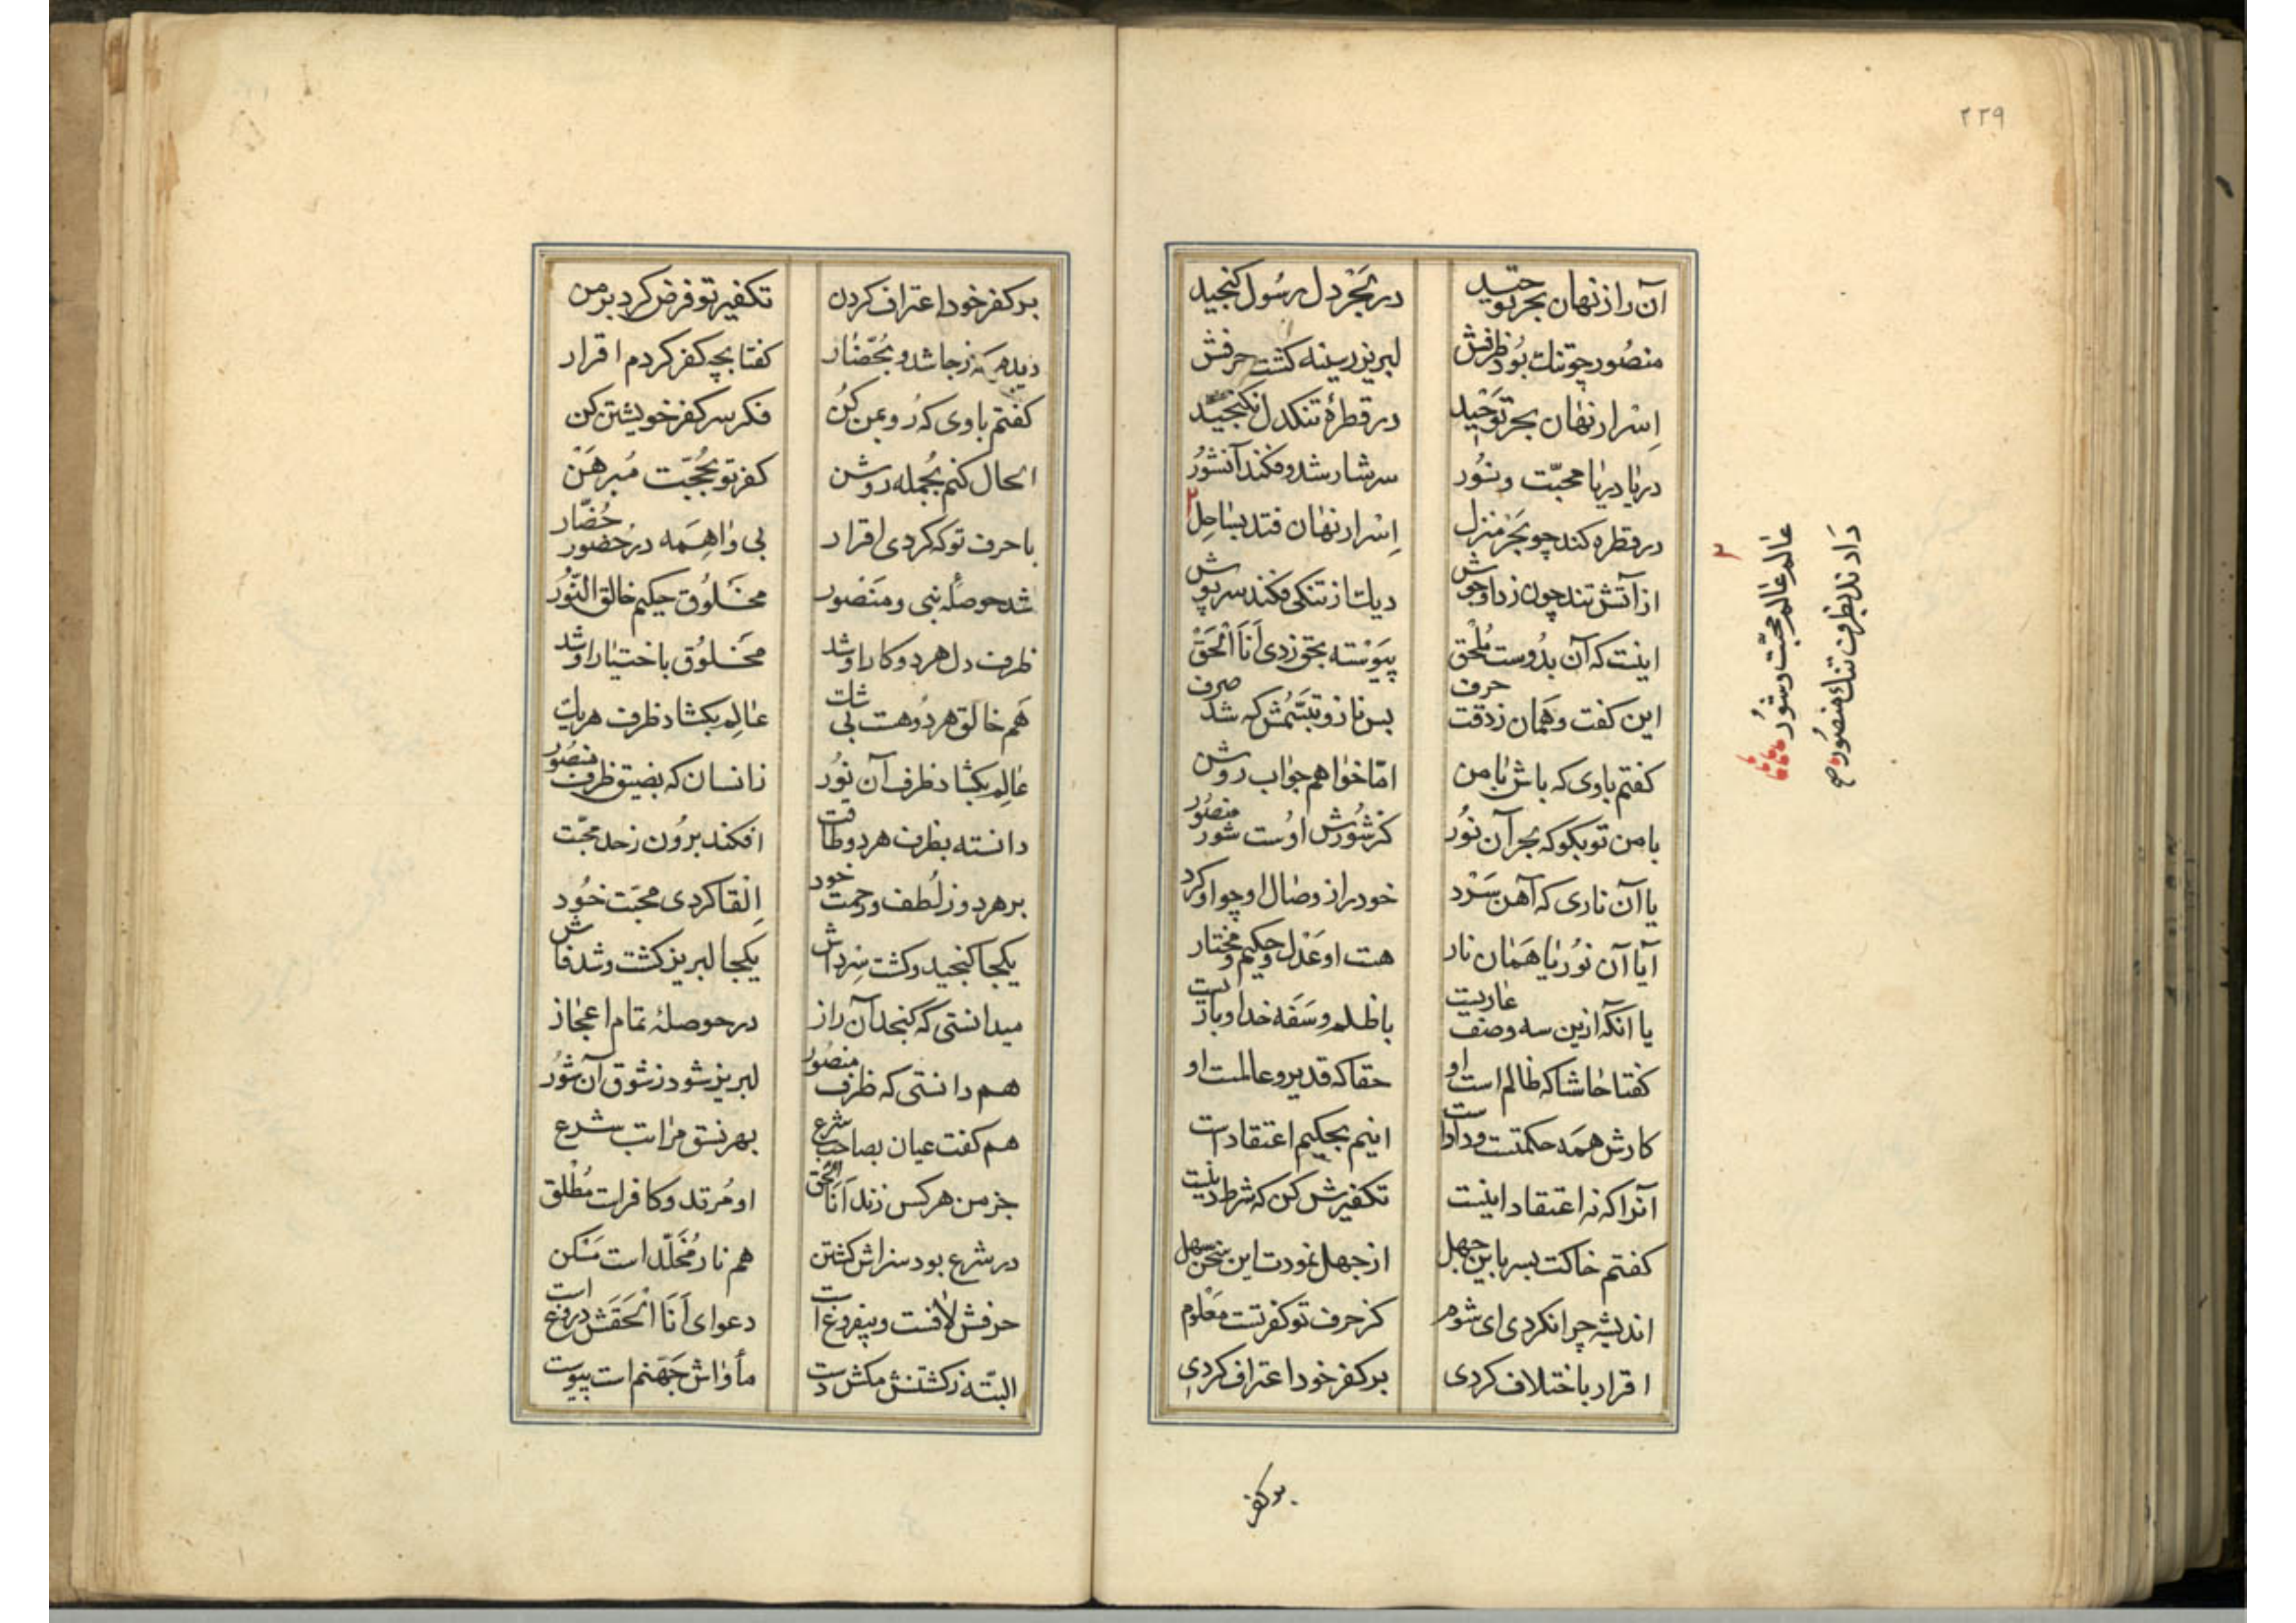 ۲۲۹
آن راز نهان بحر توحید در بحر دل رسول گنجید
منصور چو تنک بود ظرفش لبریز ز سینه گشت حرفش
اسرار نهان بحر توحید در قطرهٔ تنکدل نگنجید
دریا دریا محبت و نور سرشار شد و فکند آنشور
در قطره کند چو بحر منزل اسرار نهان فتد بساحل
از آتش تند چون زد او جوش دیک از تنکی فکند سرپوش
اینت که آن بدوست ملحق پیوسته بحق زدی انا الحق
این گفت و همان ز دقت حرف بس ناز و تبسمش که شد صرف
گفتم باوی که باش با من اما خواهم جواب روشن
با من تو بگو که بحر آن نور کز شورش اوست شور منصور
یا آن ناری که آهن سرد خود را ز وصال او چو او کرد
آیا آن نور یا همان نار هست او عدل و حکیم و مختار
یا آنکه ازین سه وصف عاریست با ظلم و سفه خدا و بازیست
گفتا حاشا که ظالم است او حقا که قدیر و عالمست او
کارش همه حکمتست و داد است اینم بحکیم اعتقاد است
آنرا که نه اعتقاد اینست تکفیرش کن که شرط دینست
گفتم خاکت بسر باین جهل از جهل نمودت این سخن سهل
اندیشه چرا نکردی ای شوم کز حرف تو کفر تست معلوم
اقرار باختلاف کردی بر کفر خود اعتراف کردی
عالم عالم محبت و شور
دادند بظرف تنک منصور صح
بر کفر
بر کفر خود اعتراف کردن تکفیر تو فرض کرد بر من
گفتا بچه کفر کردم اقرار
گفتم باوی که رو بمن کن فکر سر کفر خویشتن کن
الحال کنم بجمله روشن کفر تو بحجت مبرهن
با حرف تو که کردی اقرار بی واهمه در حضور حضار
شد حوصلهٔ نبی و منصور مخلوق حکیم خالق النور
ظرف دل هر دو کار او شد مخلوق باختیار او شد
هم خالق هر دو هست بی شک عالم بگشاد ظرف هر یک
عالم بگشاد ظرف آن نور زانسان که بضیق ظرف منصور
دانسته بظرف هر دو طاقت افکند برون ز حد محبت
بر هر دو ز لطف و رحمت خود القا کردی محبت خود
یکجا گنجید و گشت سرداش یکجا لبریز گشت و شد فاش
میدانستی که گنجد آن راز در حوصلهٔ تمام اعجاز
هم دانستی که ظرف منصور لبریز شود ز شوق آن شور
هم گفت عیان بصاحب شرع بهر نسق مراتب شرع
جز من هر کس زند انا الحق او مرتد و کافرات مطلق
در شرع بود سزاش کشتن هم نار مخلد است مسکن
حرفش لافست و بیفروغ است دعوای انا الحقش دروغ است
البته ز کشتنش مکش دست مأواش جهنم است پیوست